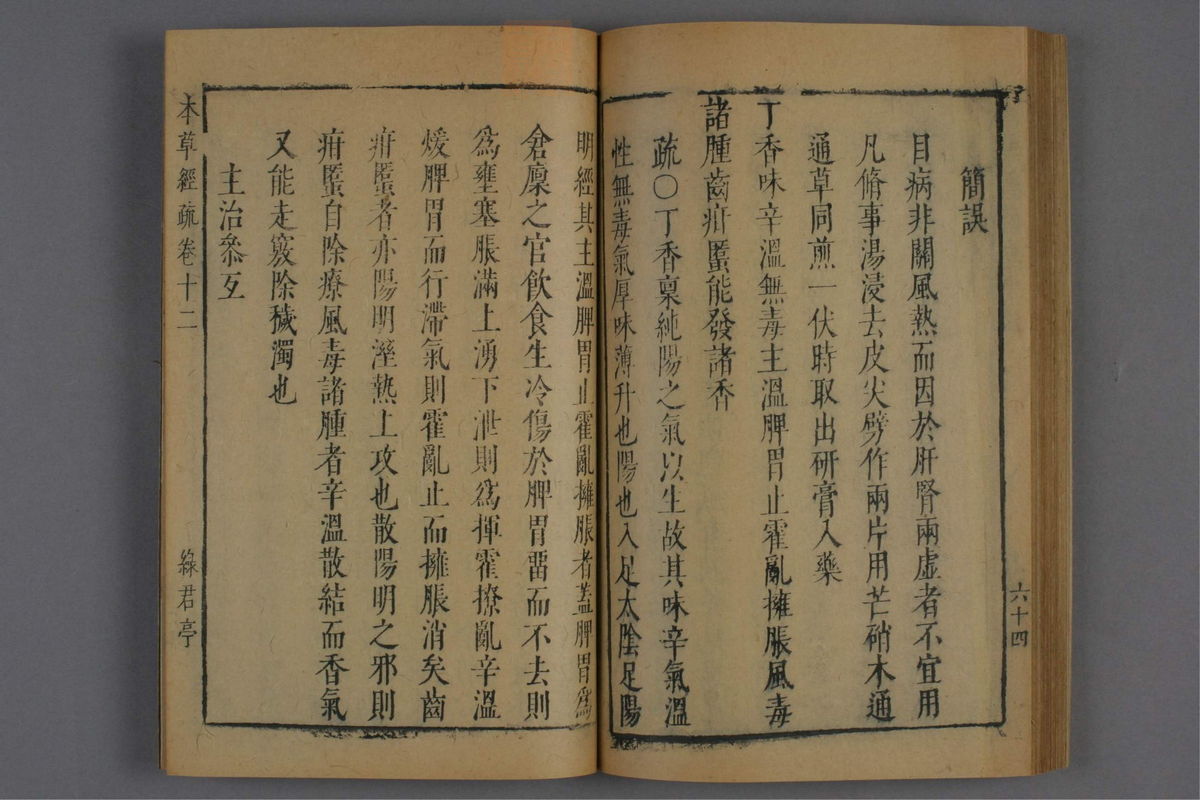 簡誤
目病非關風熱而因於肝腎兩虛者不宜用
凡脩事湯浸去皮尖劈作兩片用芒硝木通
通草同煎一伏時取出研膏入藥
丁香味辛溫無毒主溫脾胃止霍亂擁脹風毒
諸腫齒疳䘌能發諸香
疏〇丁香稟純陽之氣以生故其味辛氣溫
性無毒氣厚味薄升也陽也入足太陰足陽
明經其主溫脾胃止霍亂擁脹者蓋脾胃為
倉廩之官飲食生冷傷於脾胃畱而不去則
為壅塞脹滿上湧下泄則為揮霍撩亂辛溫
煖脾胃而行滯氣則霍亂止而擁脹消矣齒
疳䘌者亦陽明溼熱上攻也散陽明之邪則
疳䘌自除療風毒諸腫者辛溫散結而香氣
又能走竅除穢濁也
主治叅互
本草經疏卷十二
綠君亭
六十四